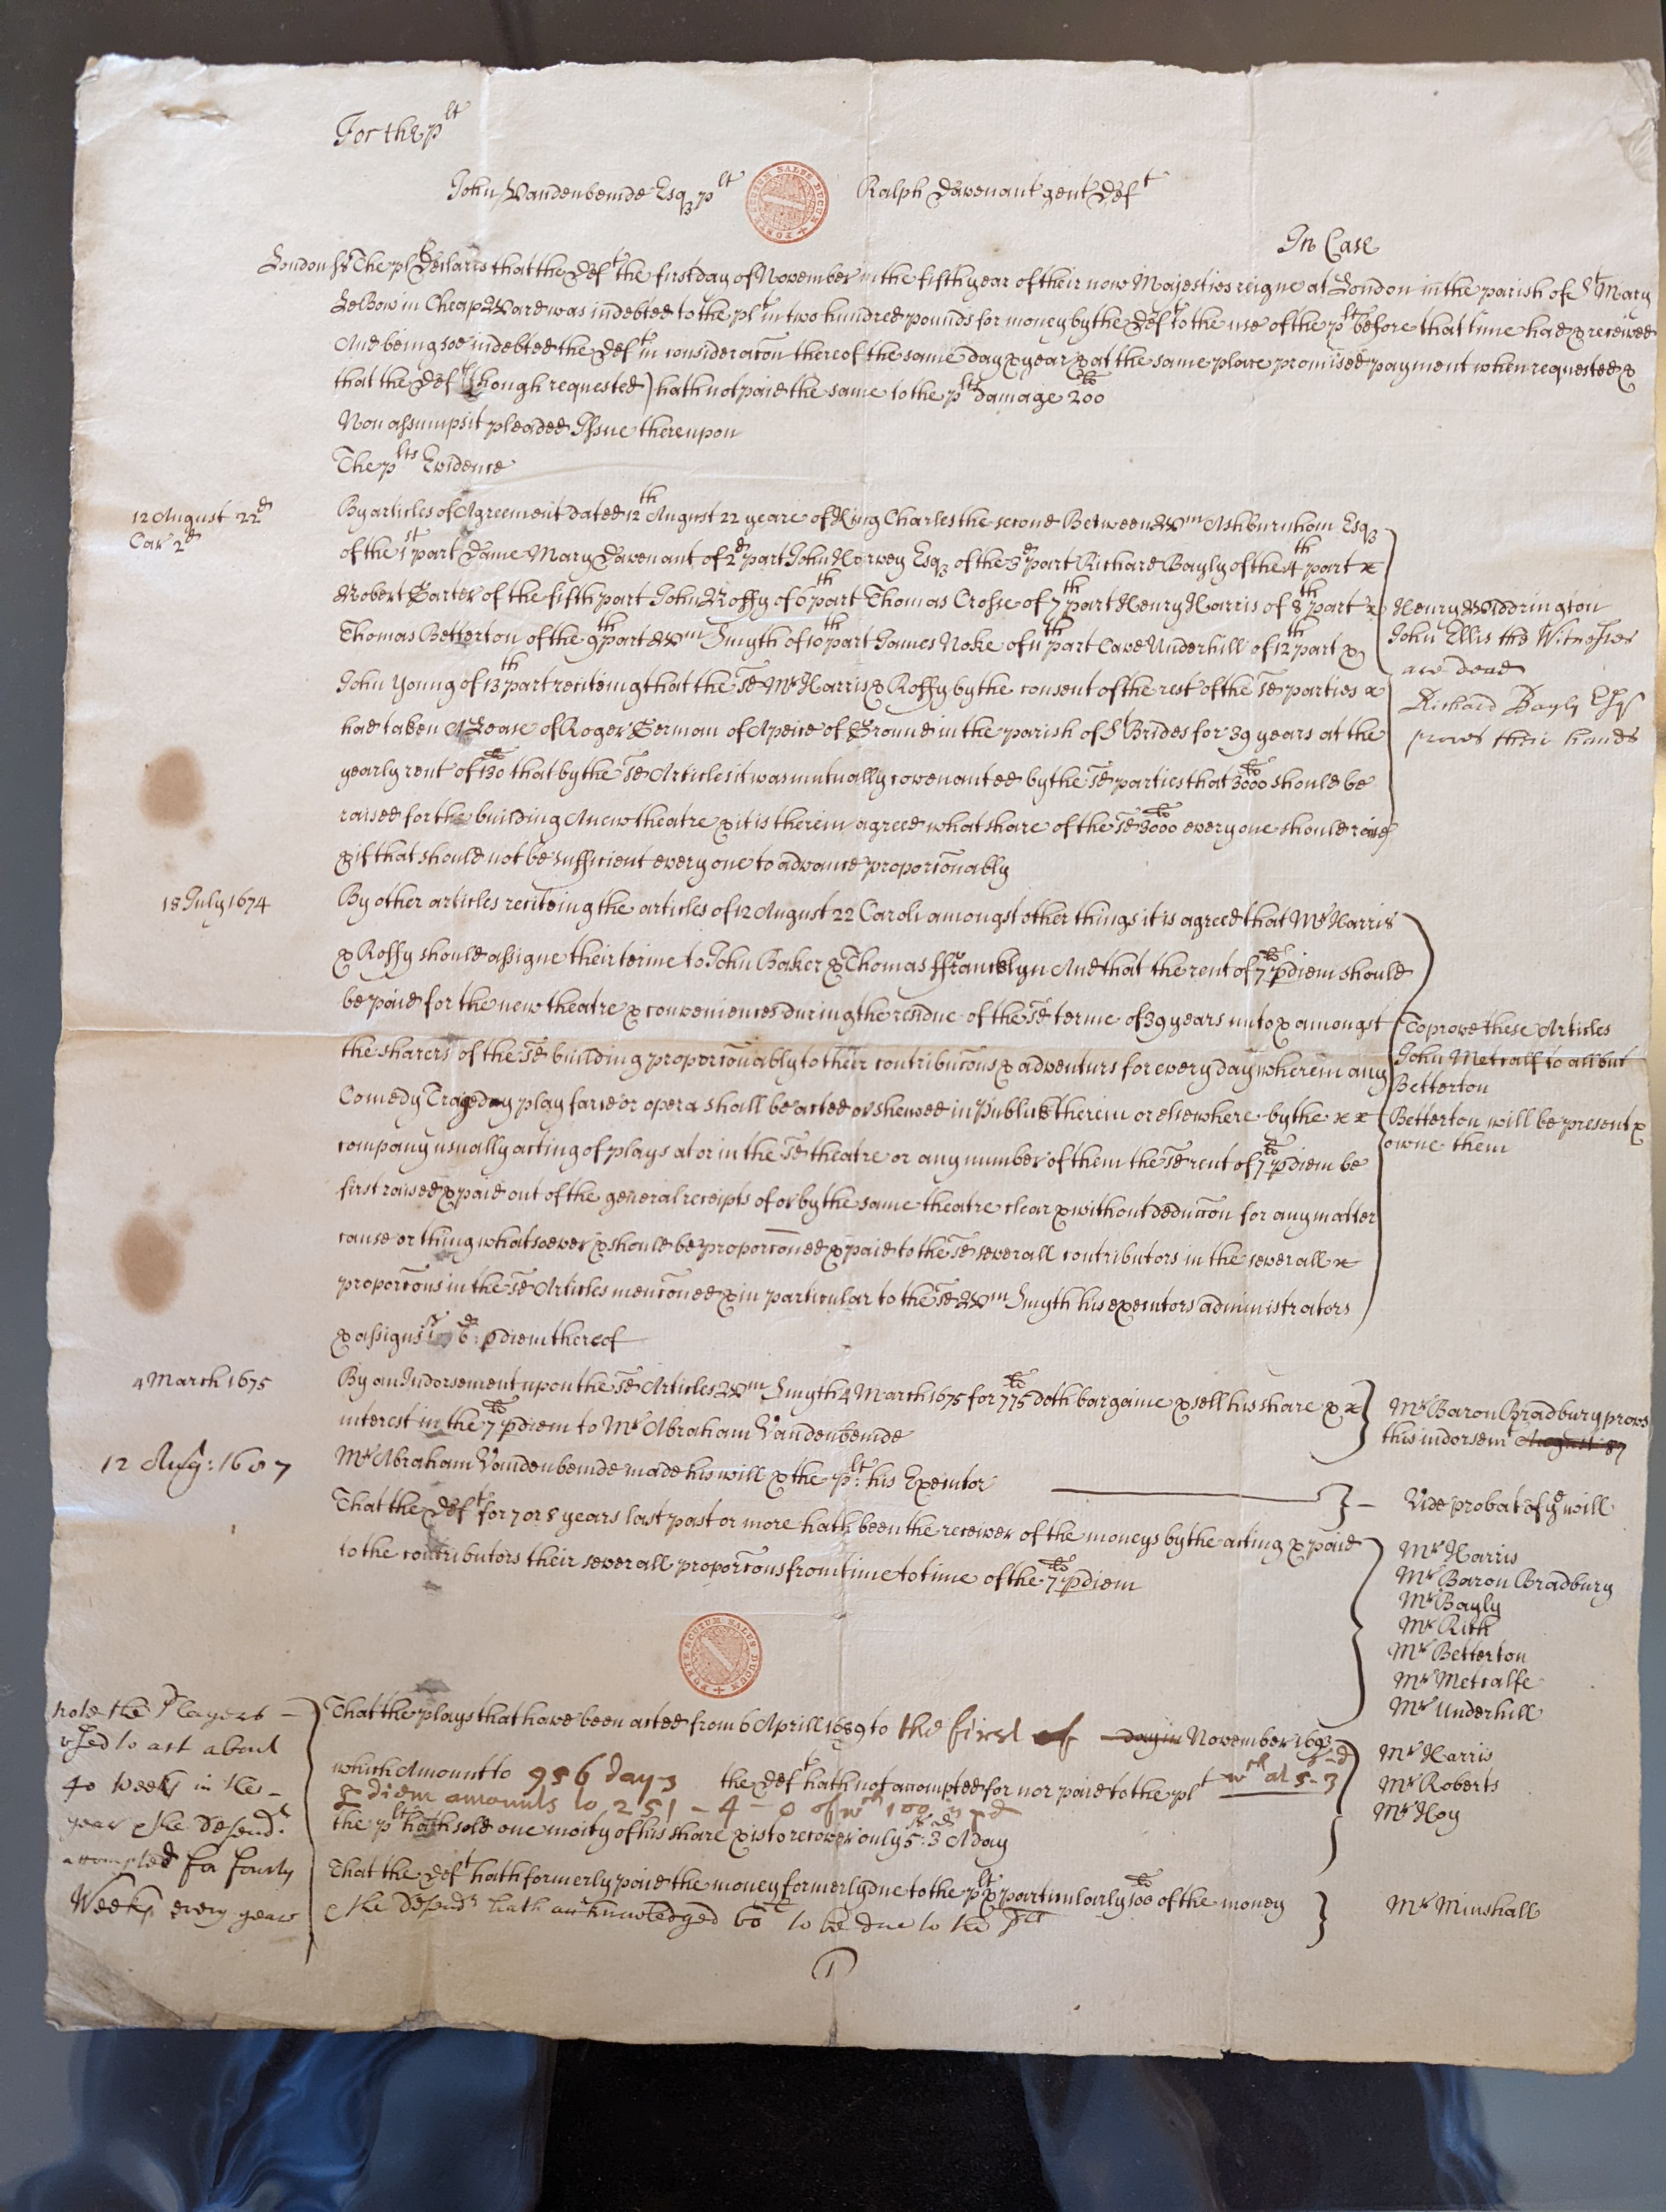 For the p^lt
John Vandenbemde Esq3 p^lt Ralph Davenant gent Def^t
PORTE SCUTUM SALUS DUCUM
In Case
London ss The pl^t declares that the Def^t the first day of November in the fifth year of their now Majesties reigne at London in the parish of S^t Mary
LeBow in Cheap Ward was indebted to the pl^t in two hundred pounds for money by the Def^t to the use of the p^lt before that time had & received
And being soe indebted the Def^t in consideracon thereof the same day & year & at the same place promised payment when requested &
that the Def^t (though requested) hath not paid the same to the p^lts damage 200^li
Non assumpsit pleaded Issue thereupon
The p^lts Evidence
12 August 22^d
Car 2^d
By articles of Agreement dated 12^th August 22 yeare of King Charles the second Between W^m Ashburnham Esq3
of the 1^st part Dame Mary Davenant of 2^d part John Hervey Esq3 of the 3^d part Richard Bayly of the 4^th part x
Robert Carter of the fifth part John Roffy of 6^th part Thomas Crosse of 7^th part Henry Harris of 8^th part x
Thomas Betterton of the 9^th part W^m Smyth of 10^th part James Noke of 11^th part Cave Underhill of 12^th part &
John Young of 13^th part reciteing that the s^d M^r Harris & Roffy by the consent of the rest of the s^d parties x
had taken A Lease of Roger German of A peice of Ground in the parish of S^t Brides for 39 years at the
yearly rent of 130^li that by the s^d Articles it was mutually covenanted by the s^d parties that 3000^li should be
raised for the building A new theatre & it is therein agreed what share of the s^d 3000^li every one should raise
& if that should not be sufficient every one to advance proporconably
Henry Widdrington
John Ellis the Witnesses
are dead
Richard Bayly Esq^r
proves their hands
18 July 1674
By other articles reciteing the articles of 12 August 22 Caroli amongst other things it is agreed that M^r Harris
& Roffy should assigne their terme to John Baker & Thomas ffrancklyn And that the rent of 7^li p diem should
be paid for the new theatre & conveniences during the residue of the s^d terme of 39 years unto & amongst
the sharers of the s^d building proporconably to their contribucons & adventurs for every day wherein any
Comedy Tragedy play farce or opera shall be acted or shewed in Publick therein or elsewhere by the x x
company usually acting of plays at or in the s^d theatre or any number of them the s^d rent of 7^li p diem be
first raised & paid out of the general receipts of or by the same theatre clear & without deduccon for any matter
cause or thing whatsoever & should be proporconed & paid to the s^d severall contributors in the severall x
proporcons in the s^d Articles menconed & in particular to the s^d W^m Smyth his executors administrators
& assigns 6^d p diem thereof
To prove these Articles
John Metcalf to all but
Betterton
Betterton will be present &
owne them
4 March 1675
By an Indorsement upon the s^d Articles W^m Smyth 4 March 1675 for 775^li doth bargaine & sell his share & x
interest in the 7^li p diem to M^r Abraham Vandenbemde
M^r Baron Bradbury proves
this indorsem^t August 87
12 Aug: 1687
M^r Abraham Vandenbemde made his will & the p^lt: his Executor
Vide probat of y^e will
That the Def^t for 7 or 8 years last past or more hath been the receiver of the moneys by the acting & paid
to the contributors their severall proporcons from time to time of the 7^li p diem
M^r Harris
M^r Baron Bradbury
M^r Bayly
M^r Rich
M^r Betterton
M^r Metcalfe
M^r Underhill
PORTE SCUTUM SALUS DUCUM
note the Players
used to act about
40 Weeks in the
year & the Defend^t
accompted for fourty
Weeks every year
That the plays that have been acted from 6 Aprill 1689 to the first of day in November 1693
which Amount to 956 days the Def^t hath not accompted for nor paid to the pl^t w^ch at 5^s-3^d
p diem amounts to 251-4-0 of w^ch 100 p^d
the p^lt hath sold one moity of his share & is to recover only 5^s: 3^d A day
M^r Harris
M^r Roberts
M^r Hoy
That the Def^t hath formerly paid the money formerly due to the p^lt & particularly 100^li of the money
& the Defend^t hath acknowledged 60^li to be due to the p^lt
M^r Minshall